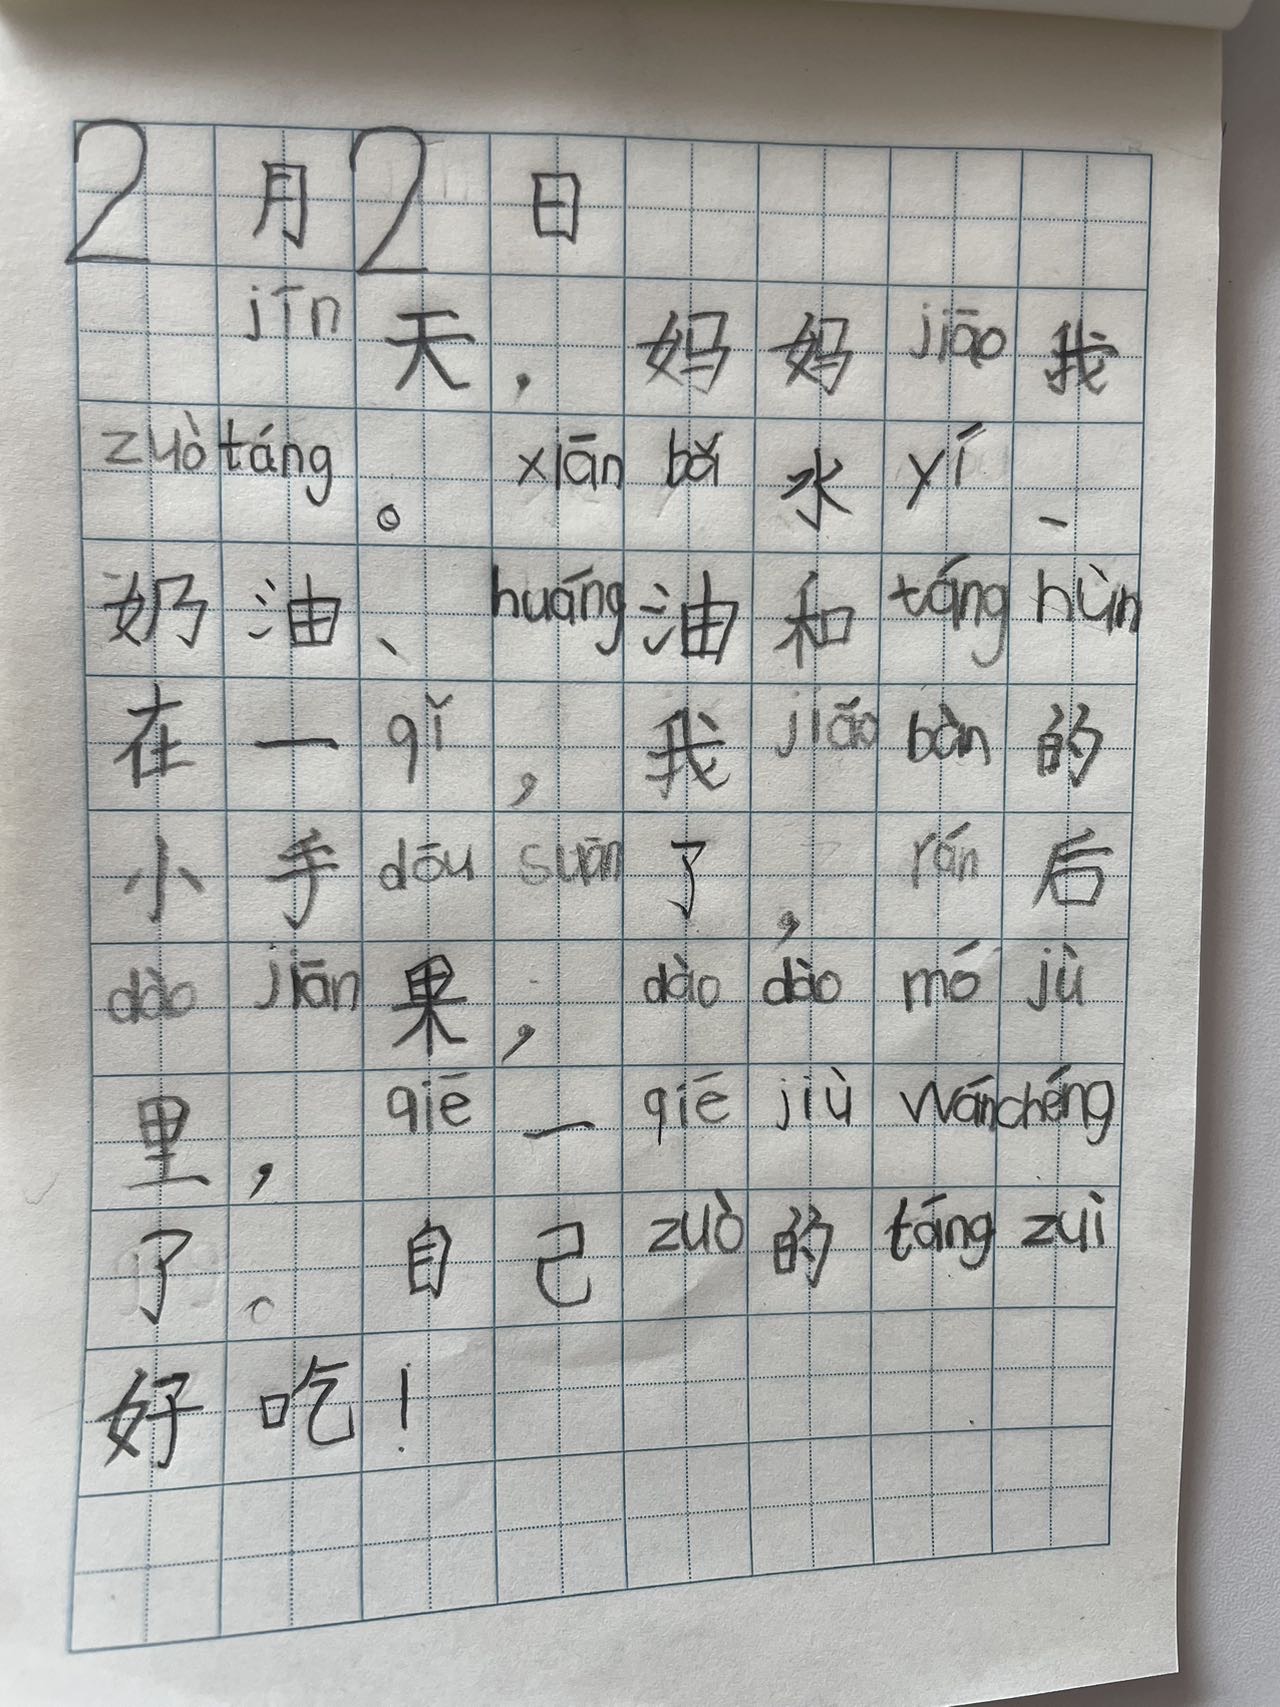 2月2日
jīn天，妈妈jiāo我
zuò táng。xiān bǎ水yí、
奶油、huáng油和táng hùn
在一qǐ，我jiǎo bàn的
小手dōu suān了，rán后
dào jiān果，dào dào mó jù
里，qiē一qiē jiù wán chéng
了。自己zuò的táng zuì
好吃！